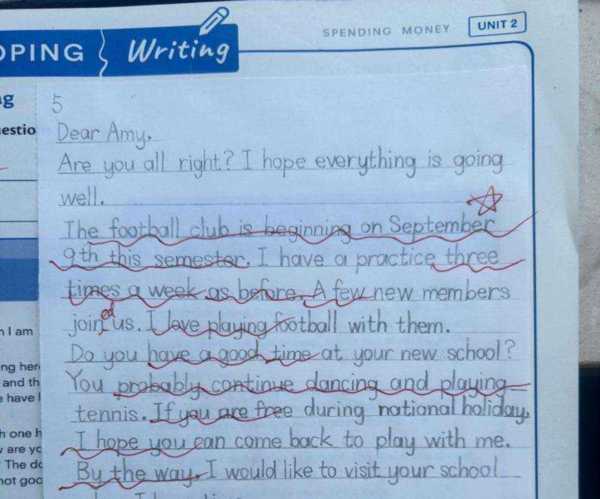 OPING Writing
SPENDING MONEY UNIT 2
g
estio
5
Dear Amy,
Are you all right? I hope everything is going
well.
The football club is beginning on September
9th this semester. I have a practice three
times a week as before. A few new members
joined us. I love playing football with them.
Do you have a good time at your new school?
You probably continue dancing and playing
tennis. If you are free during national holiday,
I hope you can come back to play with me.
By the way, I would like to visit your school
n I am
ng her
and th
e have
h one h
are yo
The do
not goo